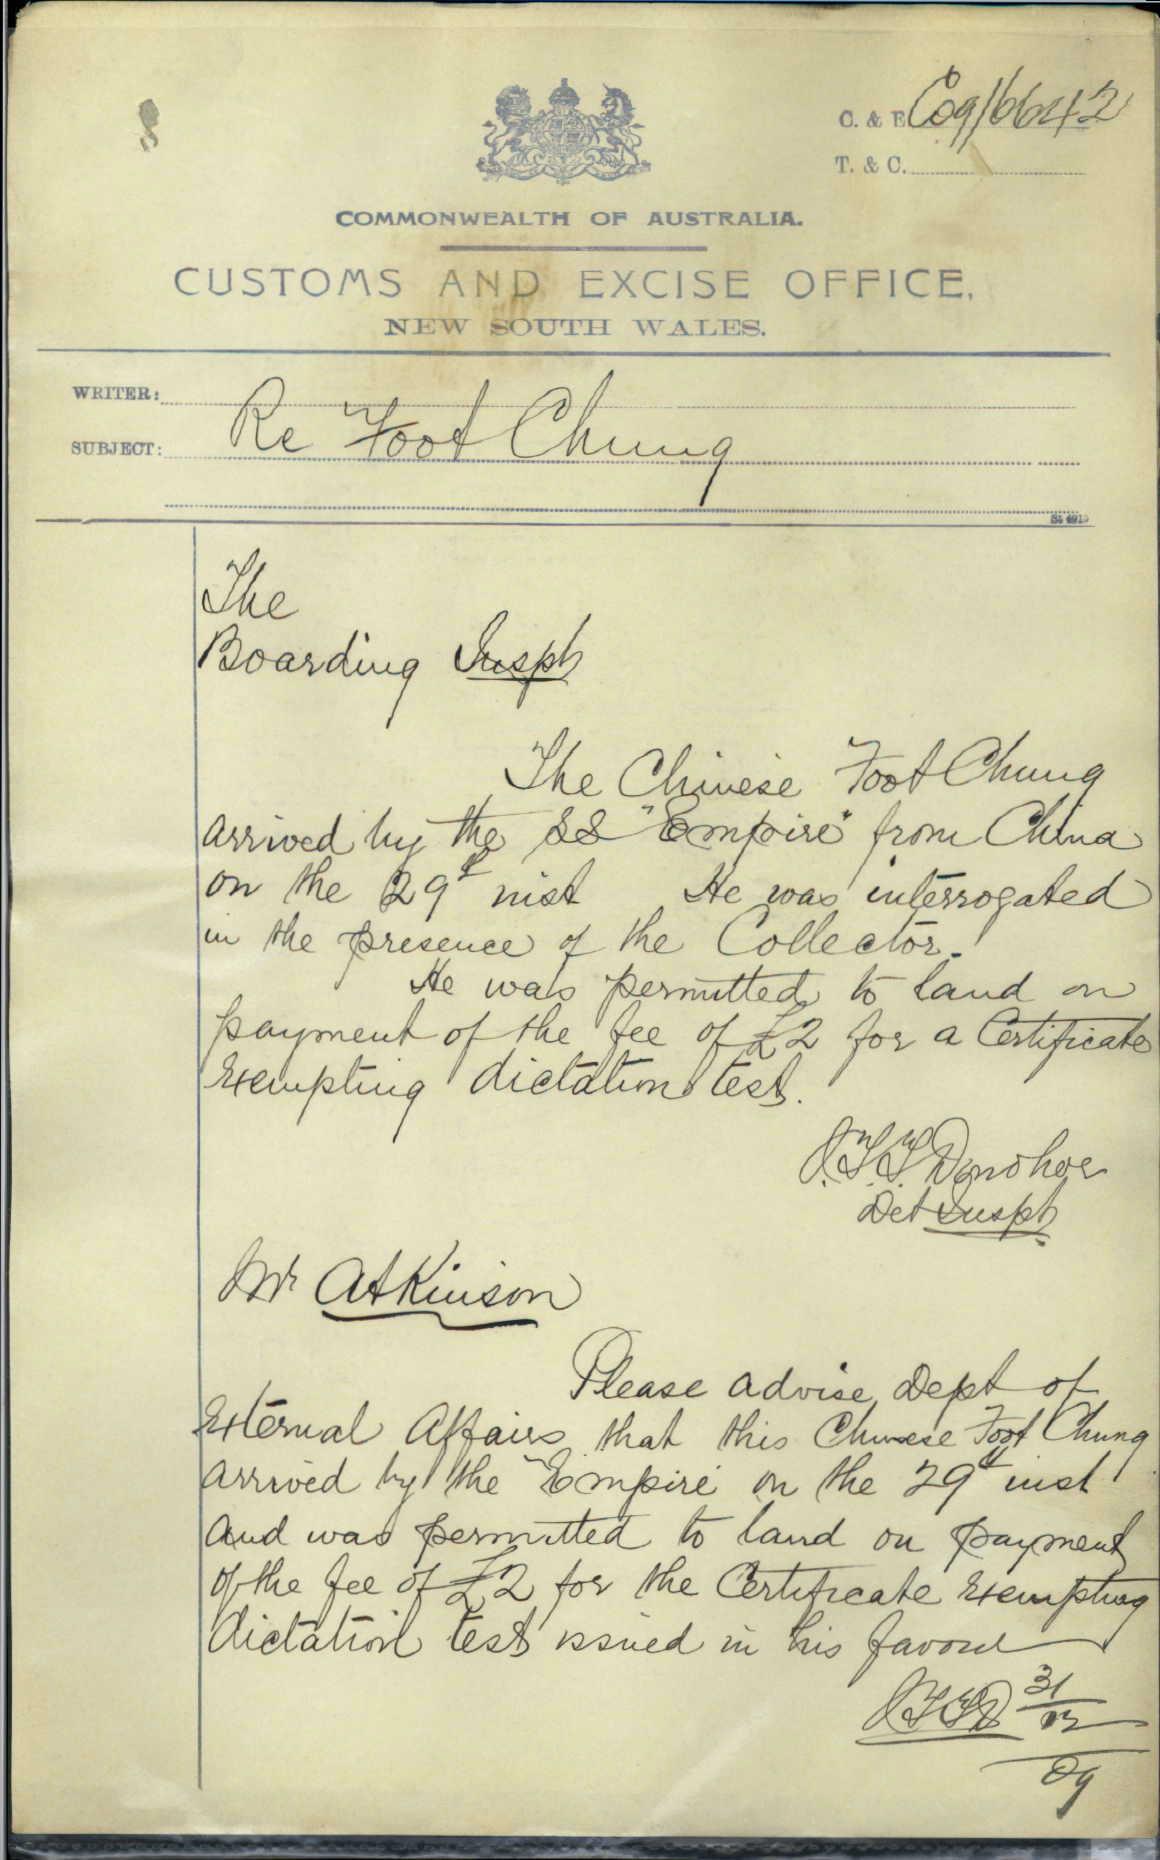 C. & E. C09/6642
T. & C.
COMMONWEALTH OF AUSTRALIA.
CUSTOMS AND EXCISE OFFICE,
NEW SOUTH WALES.
WRITER:
SUBJECT: Re Foot Chung
The
Boarding Inspr
The Chinese Foot Chung
arrived by the SS "Empire" from China
on the 29th inst He was interrogated
in the presence of the Collector.
He was permitted to land on
payment of the fee of £2 for a Certificate
Exempting dictation test.
J.T.T. Donohoe
Det Inspr
Mr Atkinson
Please advise Dept of
External Affairs that this Chinese Foot Chung
arrived by the "Empire" on the 29th inst
and was permitted to land on payment
of the fee of £2 for the Certificate Exempting
dictation test issued in his favour
JTTD 31/12/09